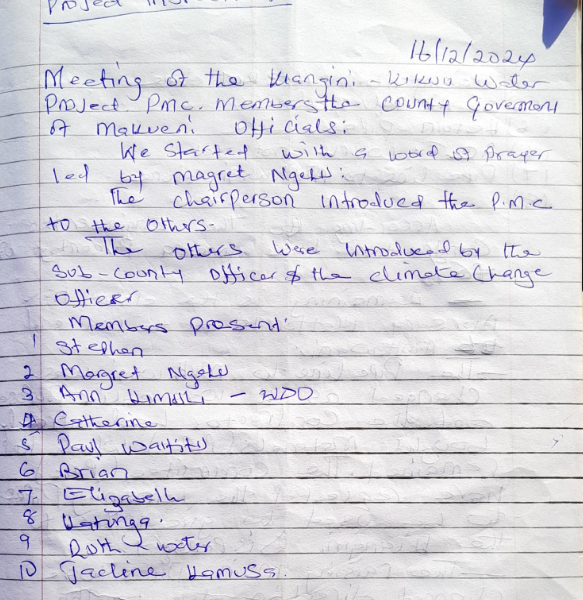 Project
16/12/2024
Meeting of the Kiangini - Kikuu Water
Project PMC. Members the County Goverment
of Makueni Officials:
We Started with a word of prayer
led by Magret Ngelu.
The chairperson introduced the P.M.C
to the others.
The others were introduced by the
Sub-County Officer & the climate Change
Officer
Members present:
1 Stephen
2 Margret Ngelu
3 Ann Kimuli - WDO
4 Catherine
5 Paul Waititu
6 Brian
7 Elizabeth
8 Katinga.
9 Ruth - water
10 Jacline Kamusa.